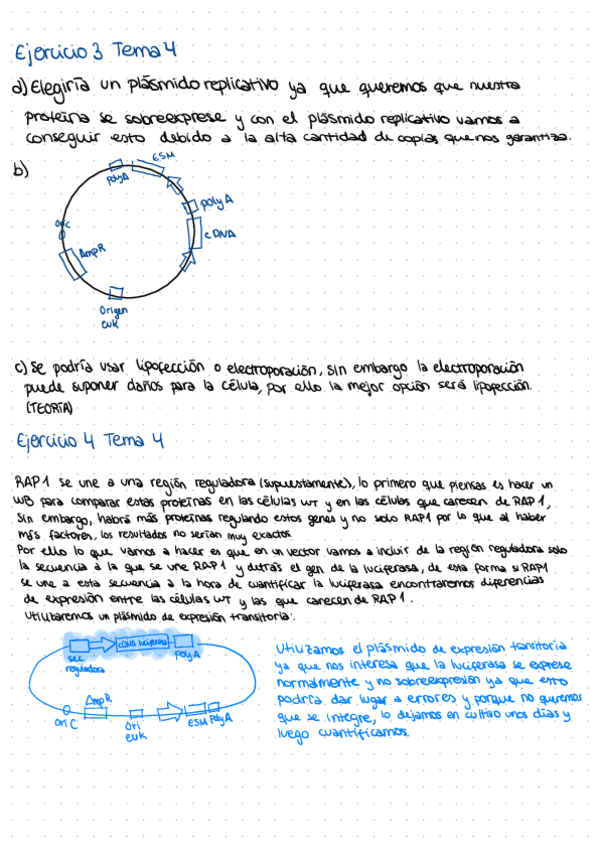 Ejercicio 3 Tema 4
a) Elegiría un plásmido replicativo ya que queremos que nuestra
proteína se sobreexprese y con el plásmido replicativo vamos a
conseguir esto debido a la alta cantidad de copias que nos garantiza.
b)
ESM
polyA
polyA
cDNA
oriC
AmpR
Origen
euk
c) Se podría usar lipofección o electroporación, sin embargo la electroporación
puede suponer daños para la célula, por ello la mejor opción será lipofección.
(TEORÍA)
Ejercicio 4 Tema 4
RAP1 se une a una región reguladora (supuestamente), lo primero que piensas es hacer un
WB para comparar estas proteínas en las células WT y en las células que carecen de RAP1,
sin embargo, habrá más proteínas regulando estos genes y no solo RAP1 por lo que al haber
más factores, los resultados no serían muy exactos.
Por ello lo que vamos a hacer es que en un vector vamos a incluir de la región reguladora solo
la secuencia a la que se une RAP1 y detrás el gen de la luciferasa, de esta forma si RAP1
se une a esta secuencia a la hora de cuantificar la luciferasa encontraremos diferencias
de expresión entre las células WT y las que carecen de RAP1.
Utilizaremos un plásmido de expresión transitoria:
cDNA luciferasa
sec.
reguladora
polyA
AmpR
oriC
ori
euk
ESM
polyA
Utilizamos el plásmido de expresión transitoria
ya que nos interesa que la luciferasa se exprese
normalmente y no sobreexpresión ya que esto
podría dar lugar a errores y porque no queremos
que se integre, lo dejamos en cultivo unos días y
luego cuantificamos.